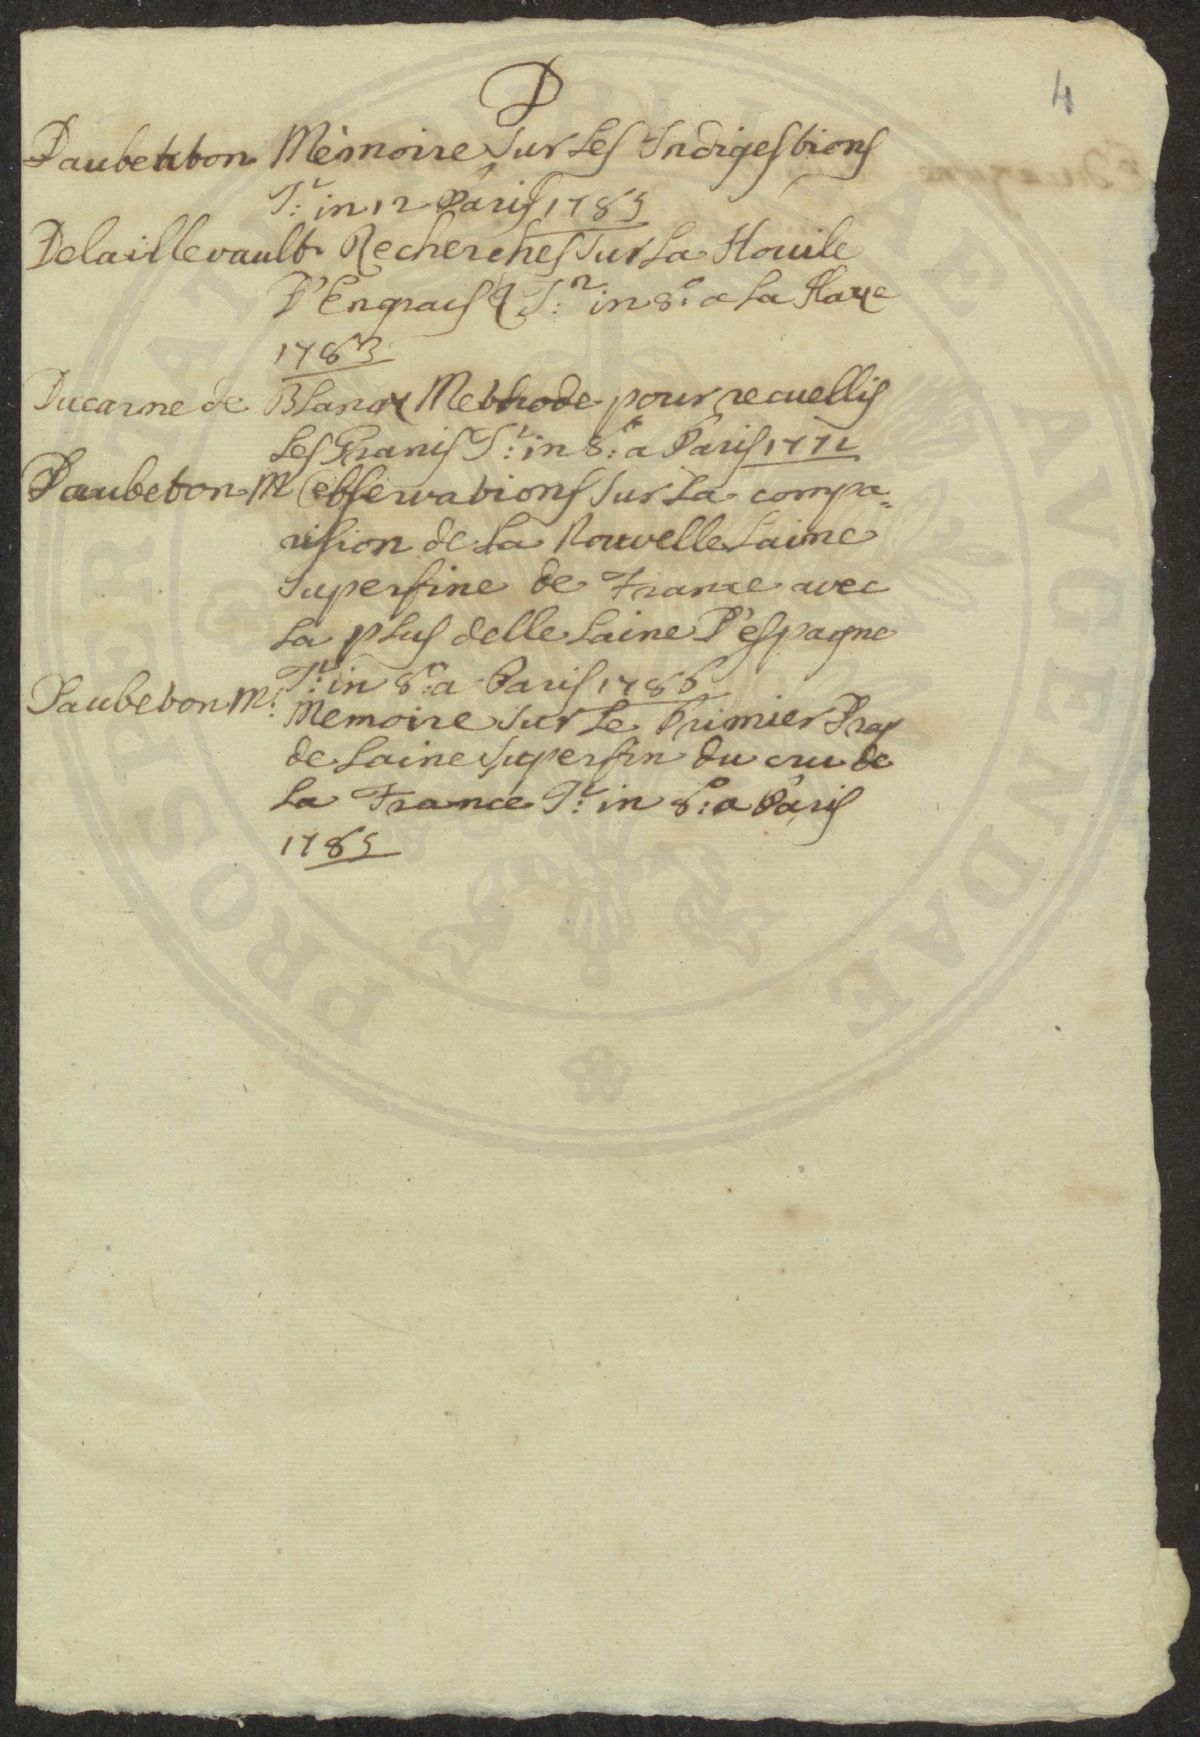 D
4
Daubenton Mèmoire sur Les Indigestions
T.r in 12 Paris 1785
Delaillevault Recherches sur La Houile
D'Engrais T.n in 8.o a La Haye
1783
Ducarne de Blangy Methode pour recuellis
Les Granis T.r in 8.o a Paris 1771
Daubeton M observations sur La compa=
rision de La Nouvelle Laine
superfine de France avec
La plus delle Laine D'espagne
T.r in 8.o a Paris 1786
Daubeton M.r
Memoire sur Le Primier Drap
de Laine superfin du cru de
La France T.r in 8.o a Paris
1785